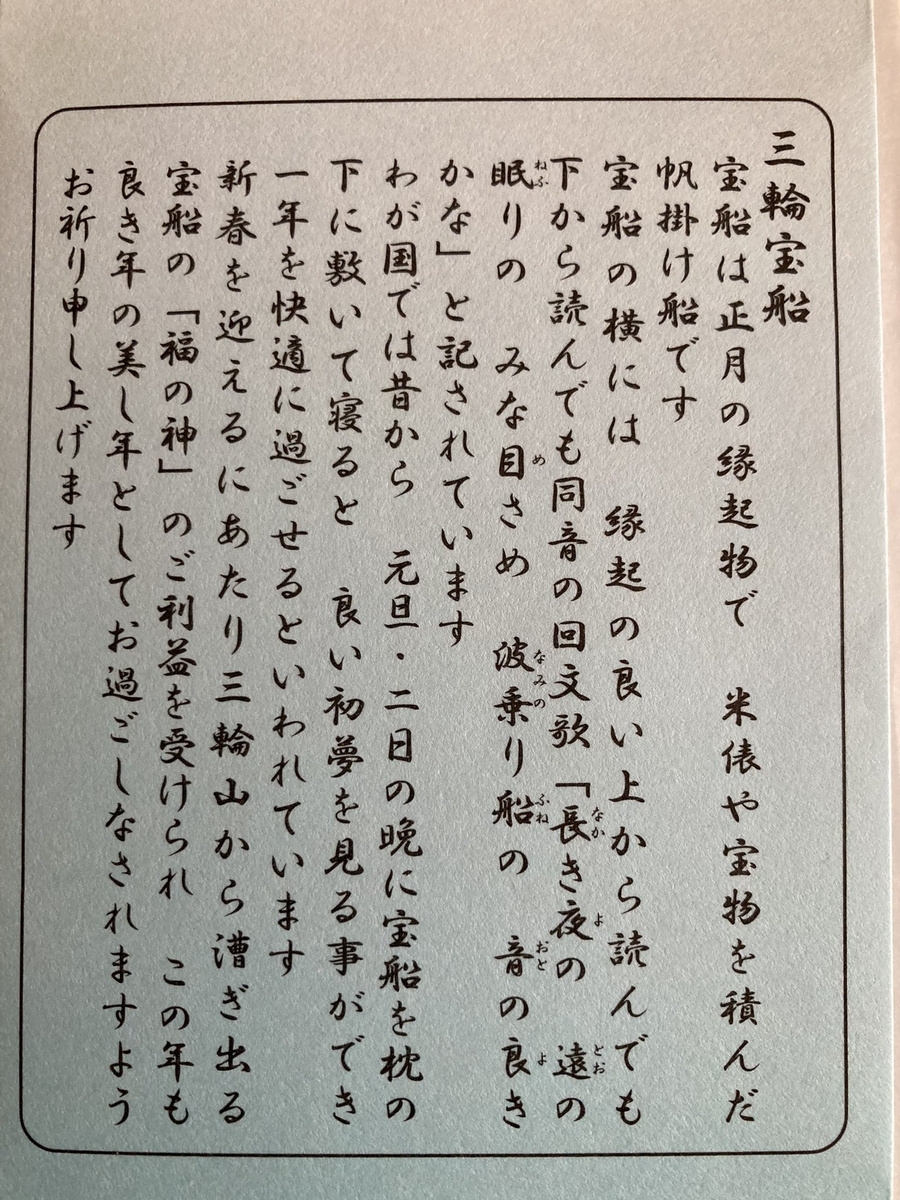 三輪宝船
宝船は正月の縁起物で　米俵や宝物を積んだ
帆掛け船です
宝船の横には　縁起の良い上から読んでも
下から読んでも同音の回文歌「長き夜の　遠の
眠りの　みな目さめ　波乗り船の　音の良き
かな」と記されています
わが国では昔から　元旦・二日の晩に宝船を枕の
下に敷いて寝ると　良い初夢を見る事ができ
一年を快適に過ごせるといわれています
新春を迎えるにあたり三輪山から漕ぎ出る
宝船の「福の神」のご利益を受けられ　この年も
良き年の美し年としてお過ごしなされますよう
お祈り申し上げます